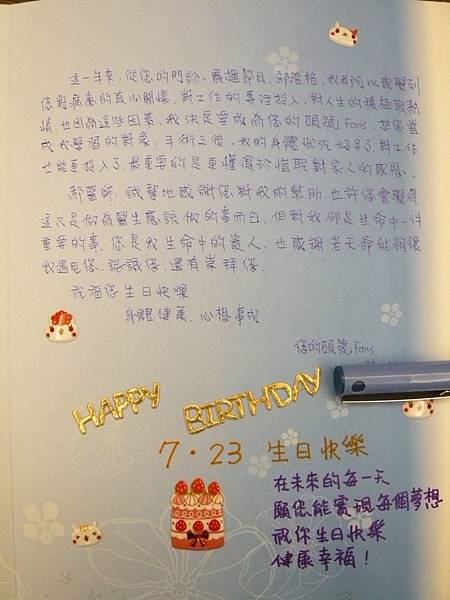 這一年來，從您的門診、廣播節目、部落格，我都可以感覺到
您對病患的真心關懷、對工作的專注投入，對人生的積極與熱
情，也因為這些因素，我決定要成為您的頭號Fans，把您當
成我學習的對象、手術之後，我的身體狀況好多了，對工作
也能更投入了，最重要的是更懂得珍惜與對家人的感恩、
鄭醫師：誠摯地感謝您對我的幫助，也許您會覺得
這只是做為醫生應該做的事而已，但對我卻是生命中一件
重要的事，您是我生命中的貴人，也感謝老天爺能夠讓
我遇見您、認識您，還有崇拜您．
祝福您生日快樂
身體健康、心想事成
您的頭號Fans
HAPPY BIRTHDAY
7．23 生日快樂
在未來的每一天
願您能實現每個夢想
祝你生日快樂
健康幸福！